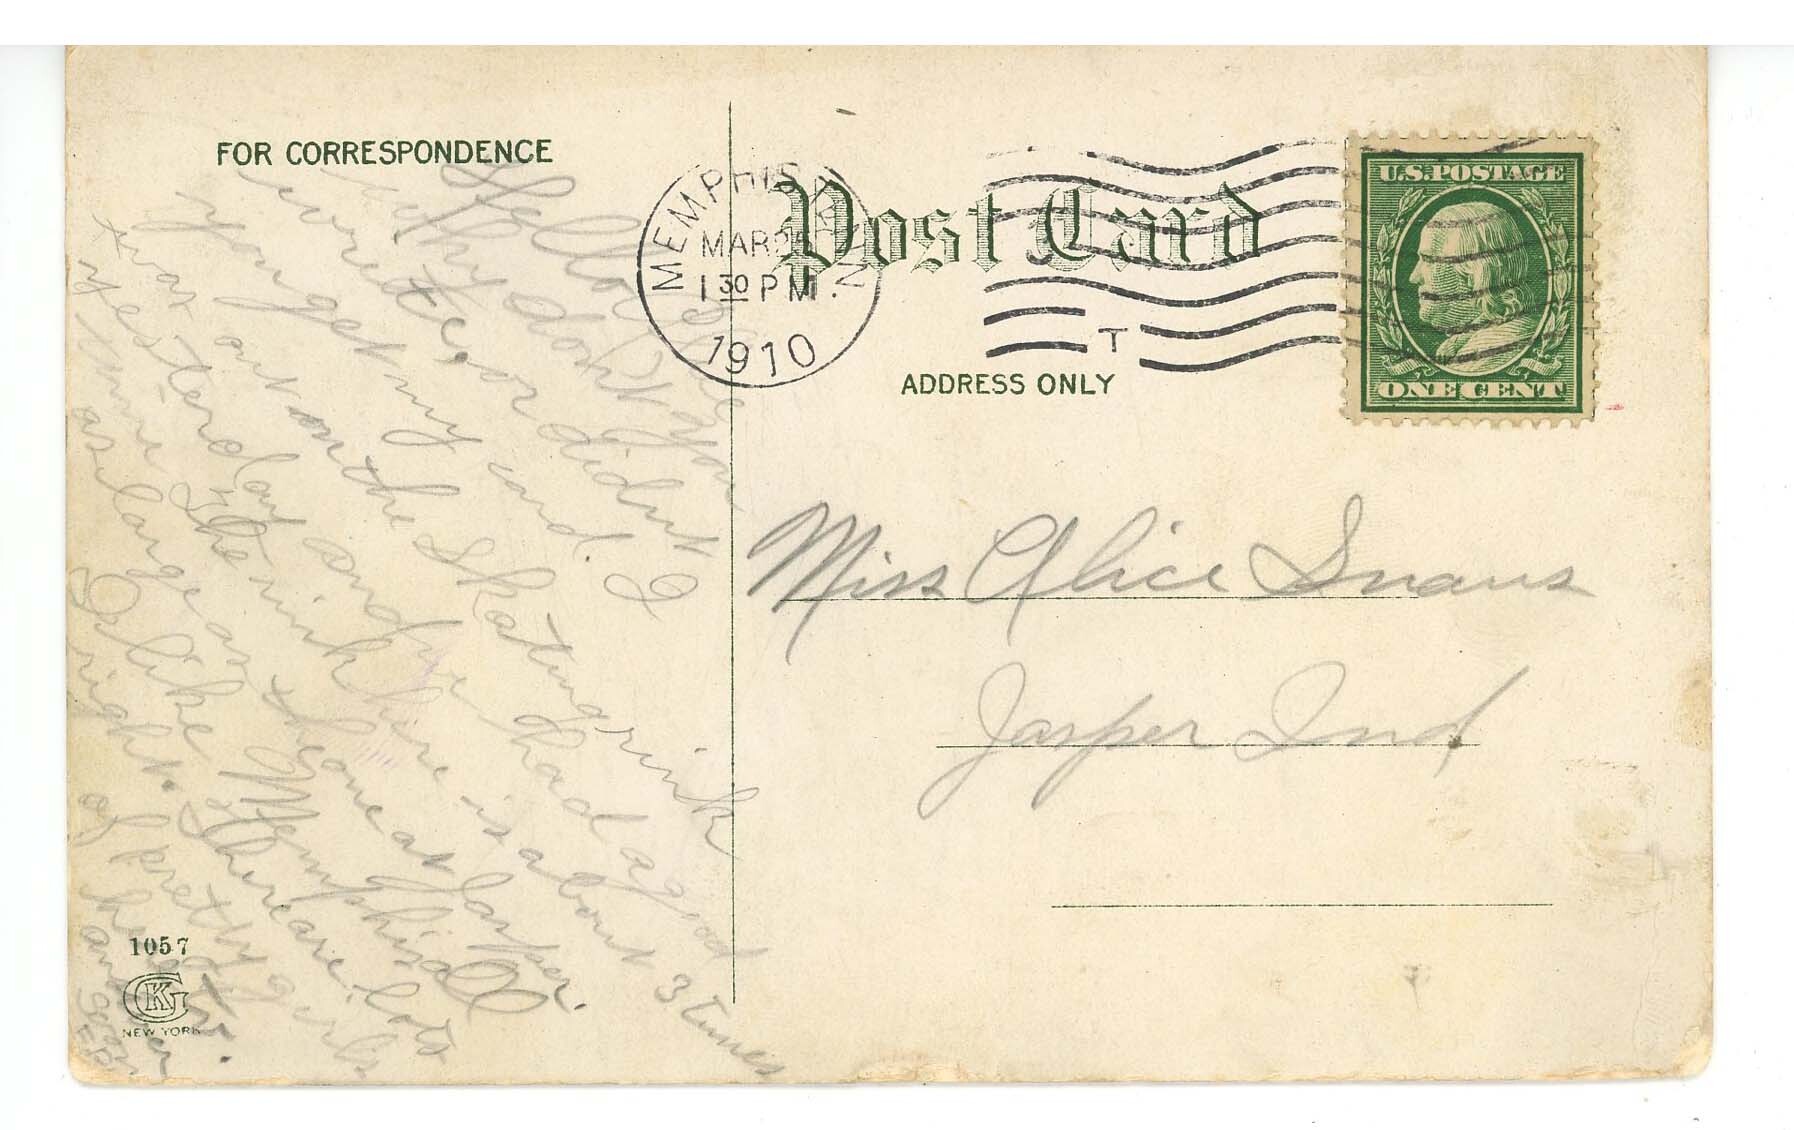 FOR CORRESPONDENCE
Post Card
ADDRESS ONLY
MEMPHIS, TENN.
MAR 25
1 30 PM
1910
T
U.S. POSTAGE
ONE CENT
Hello
Why dont you
write or didnt
you get my card. I
was out on the Skating rink
yesterday and had a good
time The rink here is about 3 times
as large as the one at Jasper.
I like Memphis all
right. There are lots
of pretty girls
here
Miss Alice
Jasper Ind
1057
GK
NEW YORK